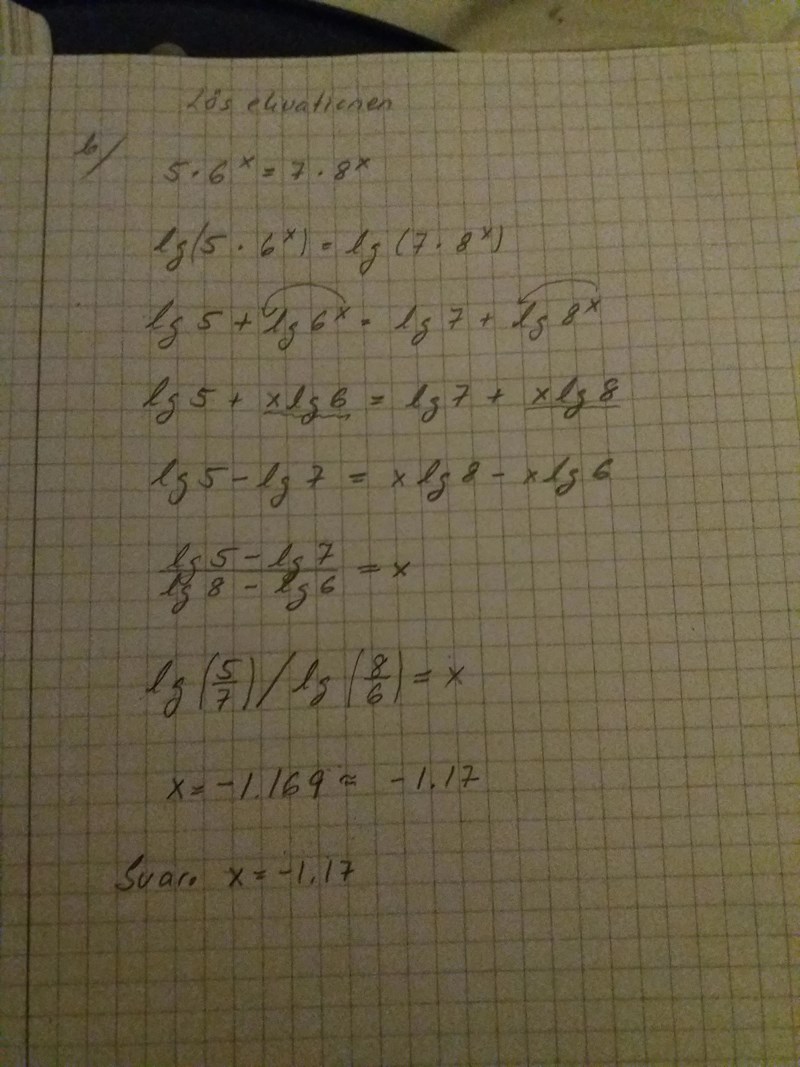 Lös ekvationen
b/ 5 · 6^x = 7 · 8^x
lg(5 · 6^x) = lg(7 · 8^x)
lg 5 + lg 6^x = lg 7 + lg 8^x
lg 5 + x lg 6 = lg 7 + x lg 8
lg 5 - lg 7 = x lg 8 - x lg 6
lg 5 - lg 7
lg 8 - lg 6 = x
lg(5/7) / lg(8/6) = x
x = -1.169 ≈ -1.17
Svar. x = -1.17